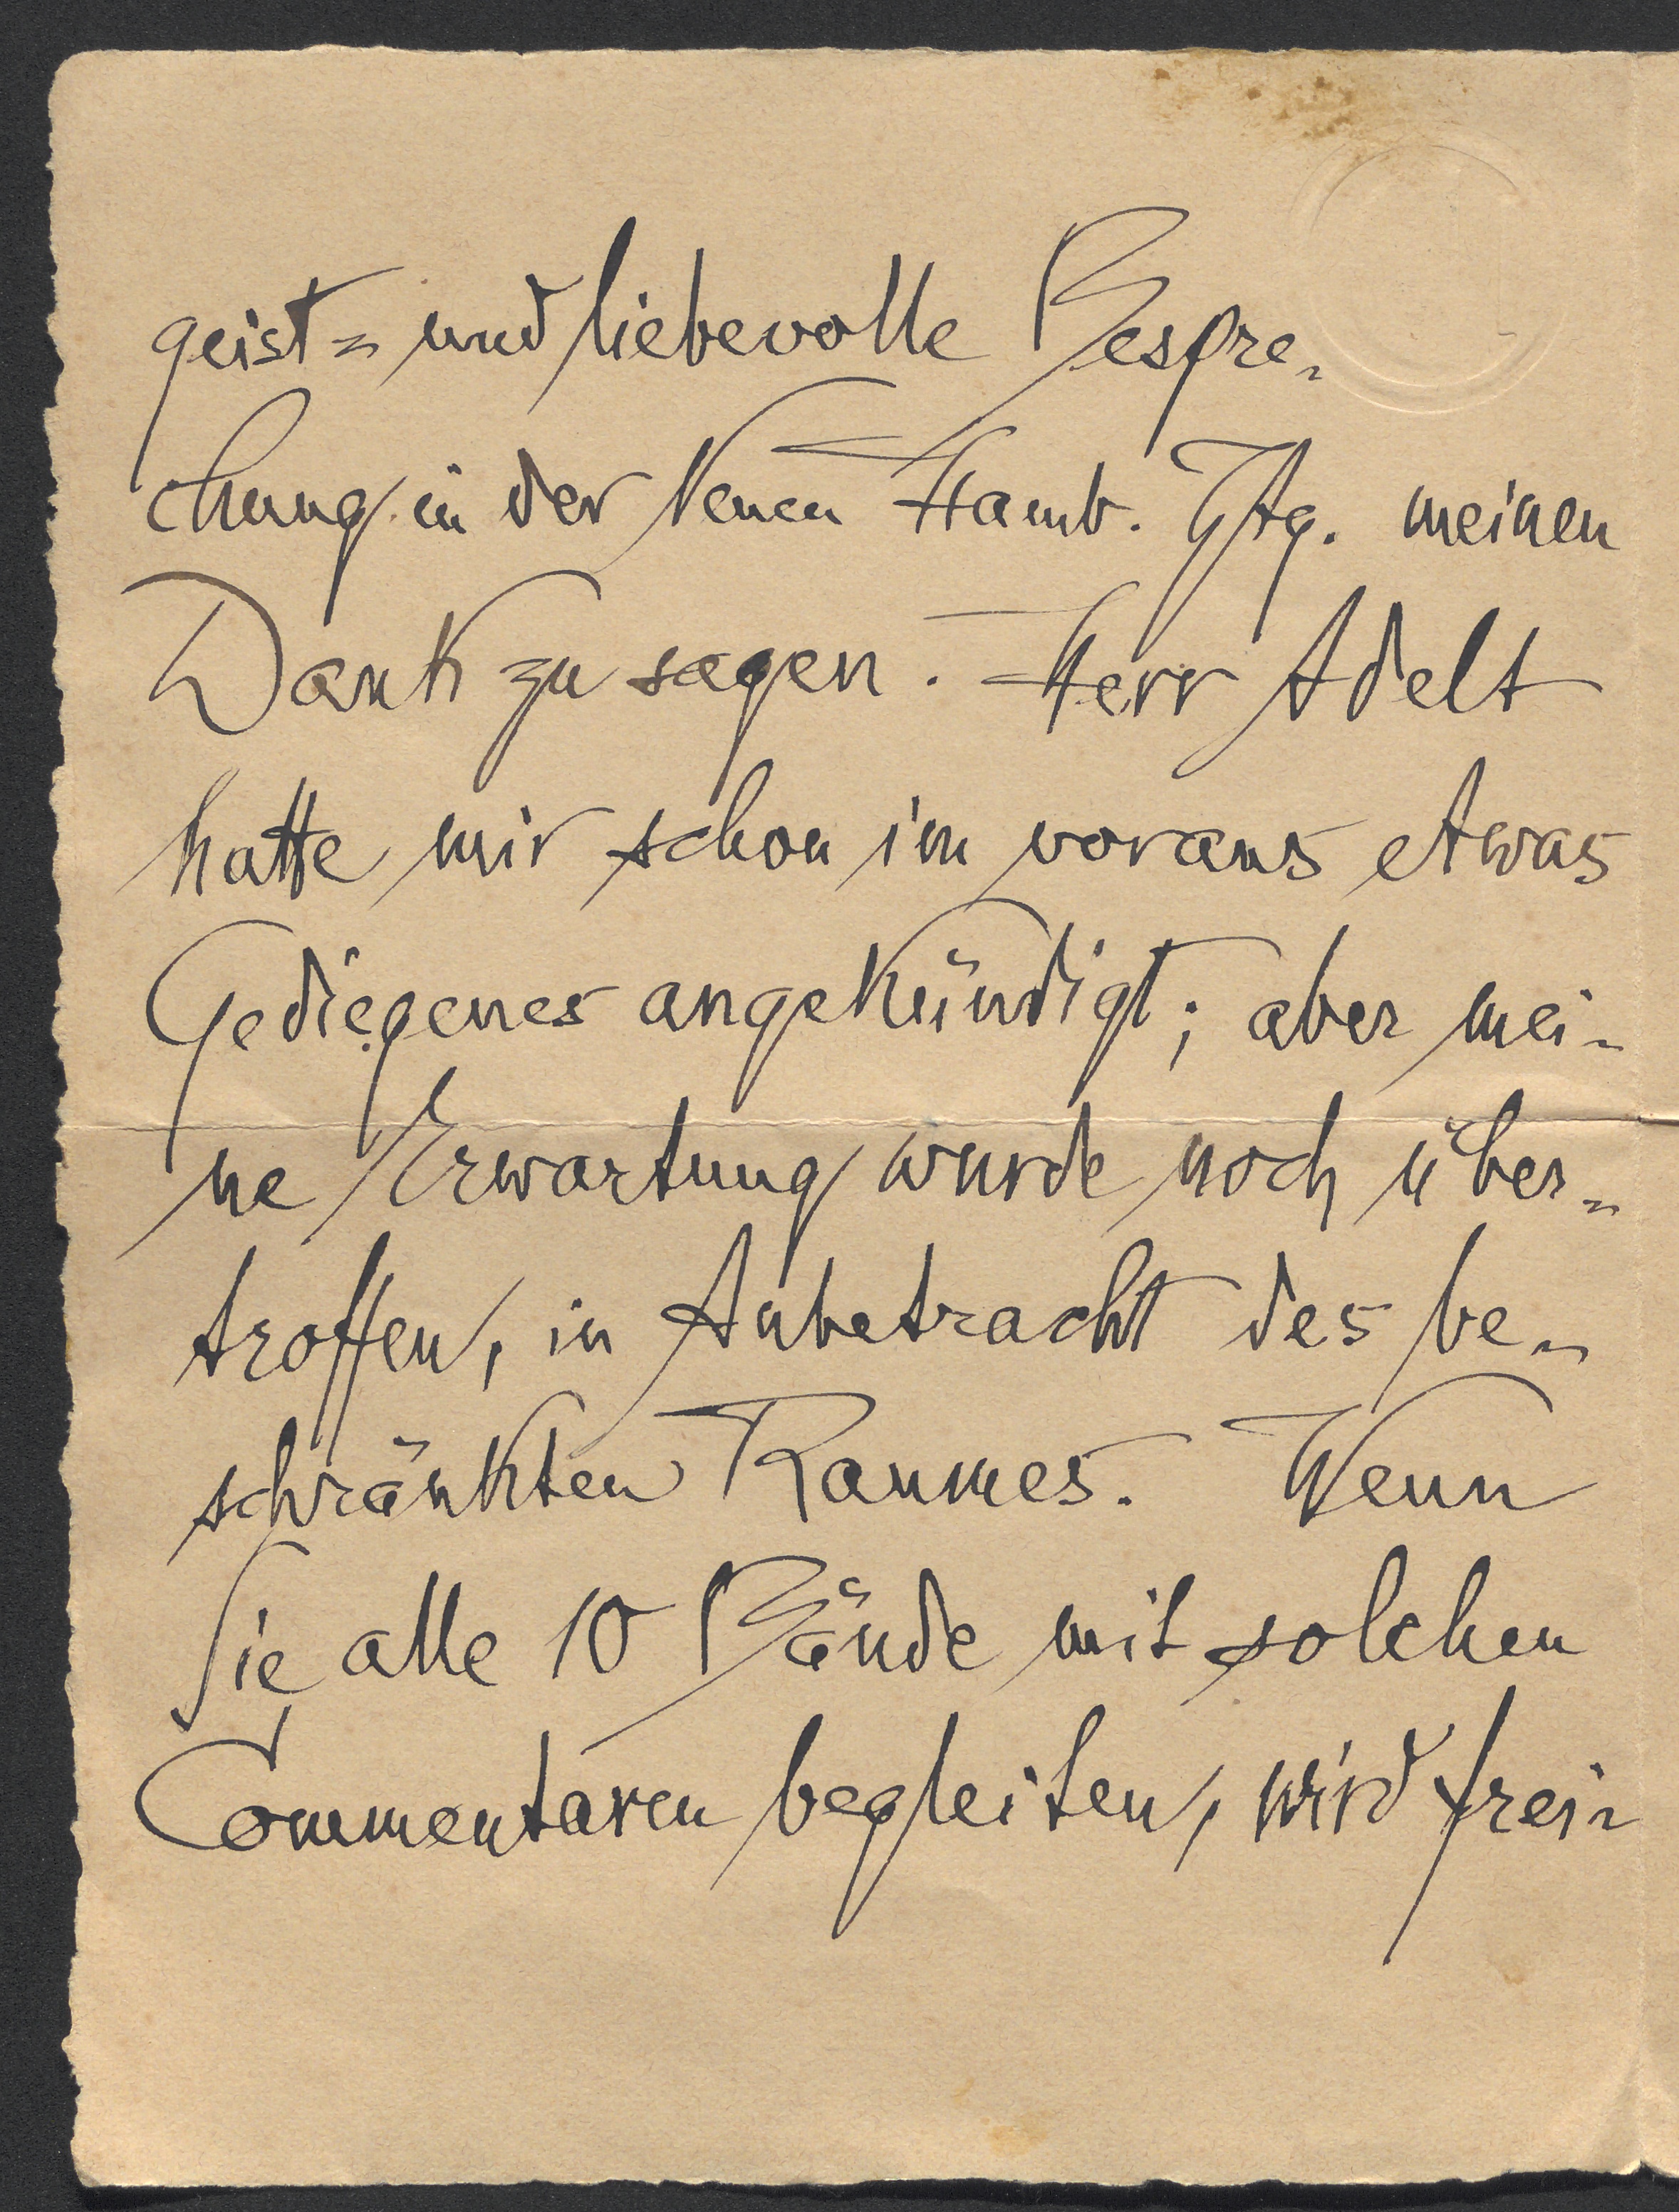 geist- und liebevolle Bespre-
chung in der Neuen Hamb. Ztg. meinen
Dank zu sagen. Herr Adelt
hatte mir schon im voraus etwas
Gediegenes angekündigt; aber mei-
ne Erwartung wurde noch über-
troffen, in Anbetracht des be-
schränkten Raumes. Wenn
Sie alle 10 Bände mit solchen
Commentaren begleiten, wird frei-